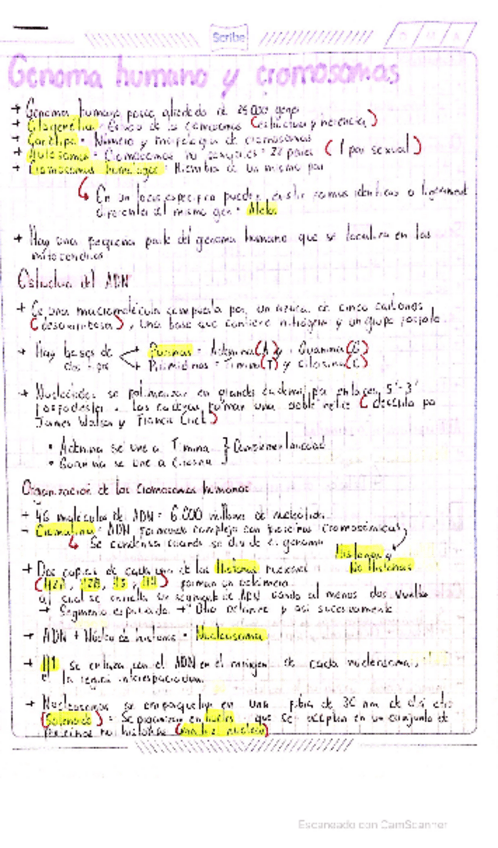 Scribe
Genoma humano y cromosomas
→ Genoma humano posee alrededor de 25 000 genes
→ Citogenética = Estudio de los cromosomas (estructura y herencia)
→ Cariotipo = Número y morfología de cromosomas
→ Autosomas = Cromosomas no sexuales = 22 pares (1 par sexual)
→ Cromosomas homólogos = Miembros de un mismo par
↳ En un locus específico pueden existir formas idénticas o ligeramente
diferentes del mismo gen = Alelos
→ Hay una pequeña parte del genoma humano que se localiza en las
mitocondrias
Estructura del ADN
→ Es una macromolécula compuesta por un azúcar de cinco carbonos
(desoxirribosa), una base que contiene nitrógeno y un grupo fosfato
→ Hay bases de
dos tipos
Purinas = Adenina (A) y Guanina (G)
Pirimidinas = Timina (T) y citosina (C)
→ Nucleótidos se polimerizan en grandes cadenas por enlaces 5'-3'
fosfodiester. Las cadenas forman una doble hélice (descrita por
James Watson y Francis Crick)
• Adenina se une a Timina } Complementariedad
• Guanina se une a Citosina
Organización de los cromosomas humanos
→ 46 moléculas de ADN = 6.000 millones de nucleótidos
→ Cromatina = ADN formando complejo con proteínas cromosómicas
↳ Se condensa cuando se divide el genoma
Histonas y
No Histonas
→ Dos copias de cada una de las Histonas
(H2A, H2B, H3, H4) forman un octámero
al cual se enrolla un segmento de ADN dando al menos dos vueltas
→ Segmento espaciado → Otro octámero y así sucesivamente
→ ADN + Núcleo de histonas = Nucleosoma
→ H1 se enlaza con el ADN en el margen de cada nucleosoma,
la región internucleosómica
→ Nucleosomas se empaquetan en una fibra de 30 nm de diámetro
(Solenoide) = Se organizan en bucles que se acoplan en un conjunto de
proteínas no histonas (matriz nuclear)
Escaneado con CamScanner